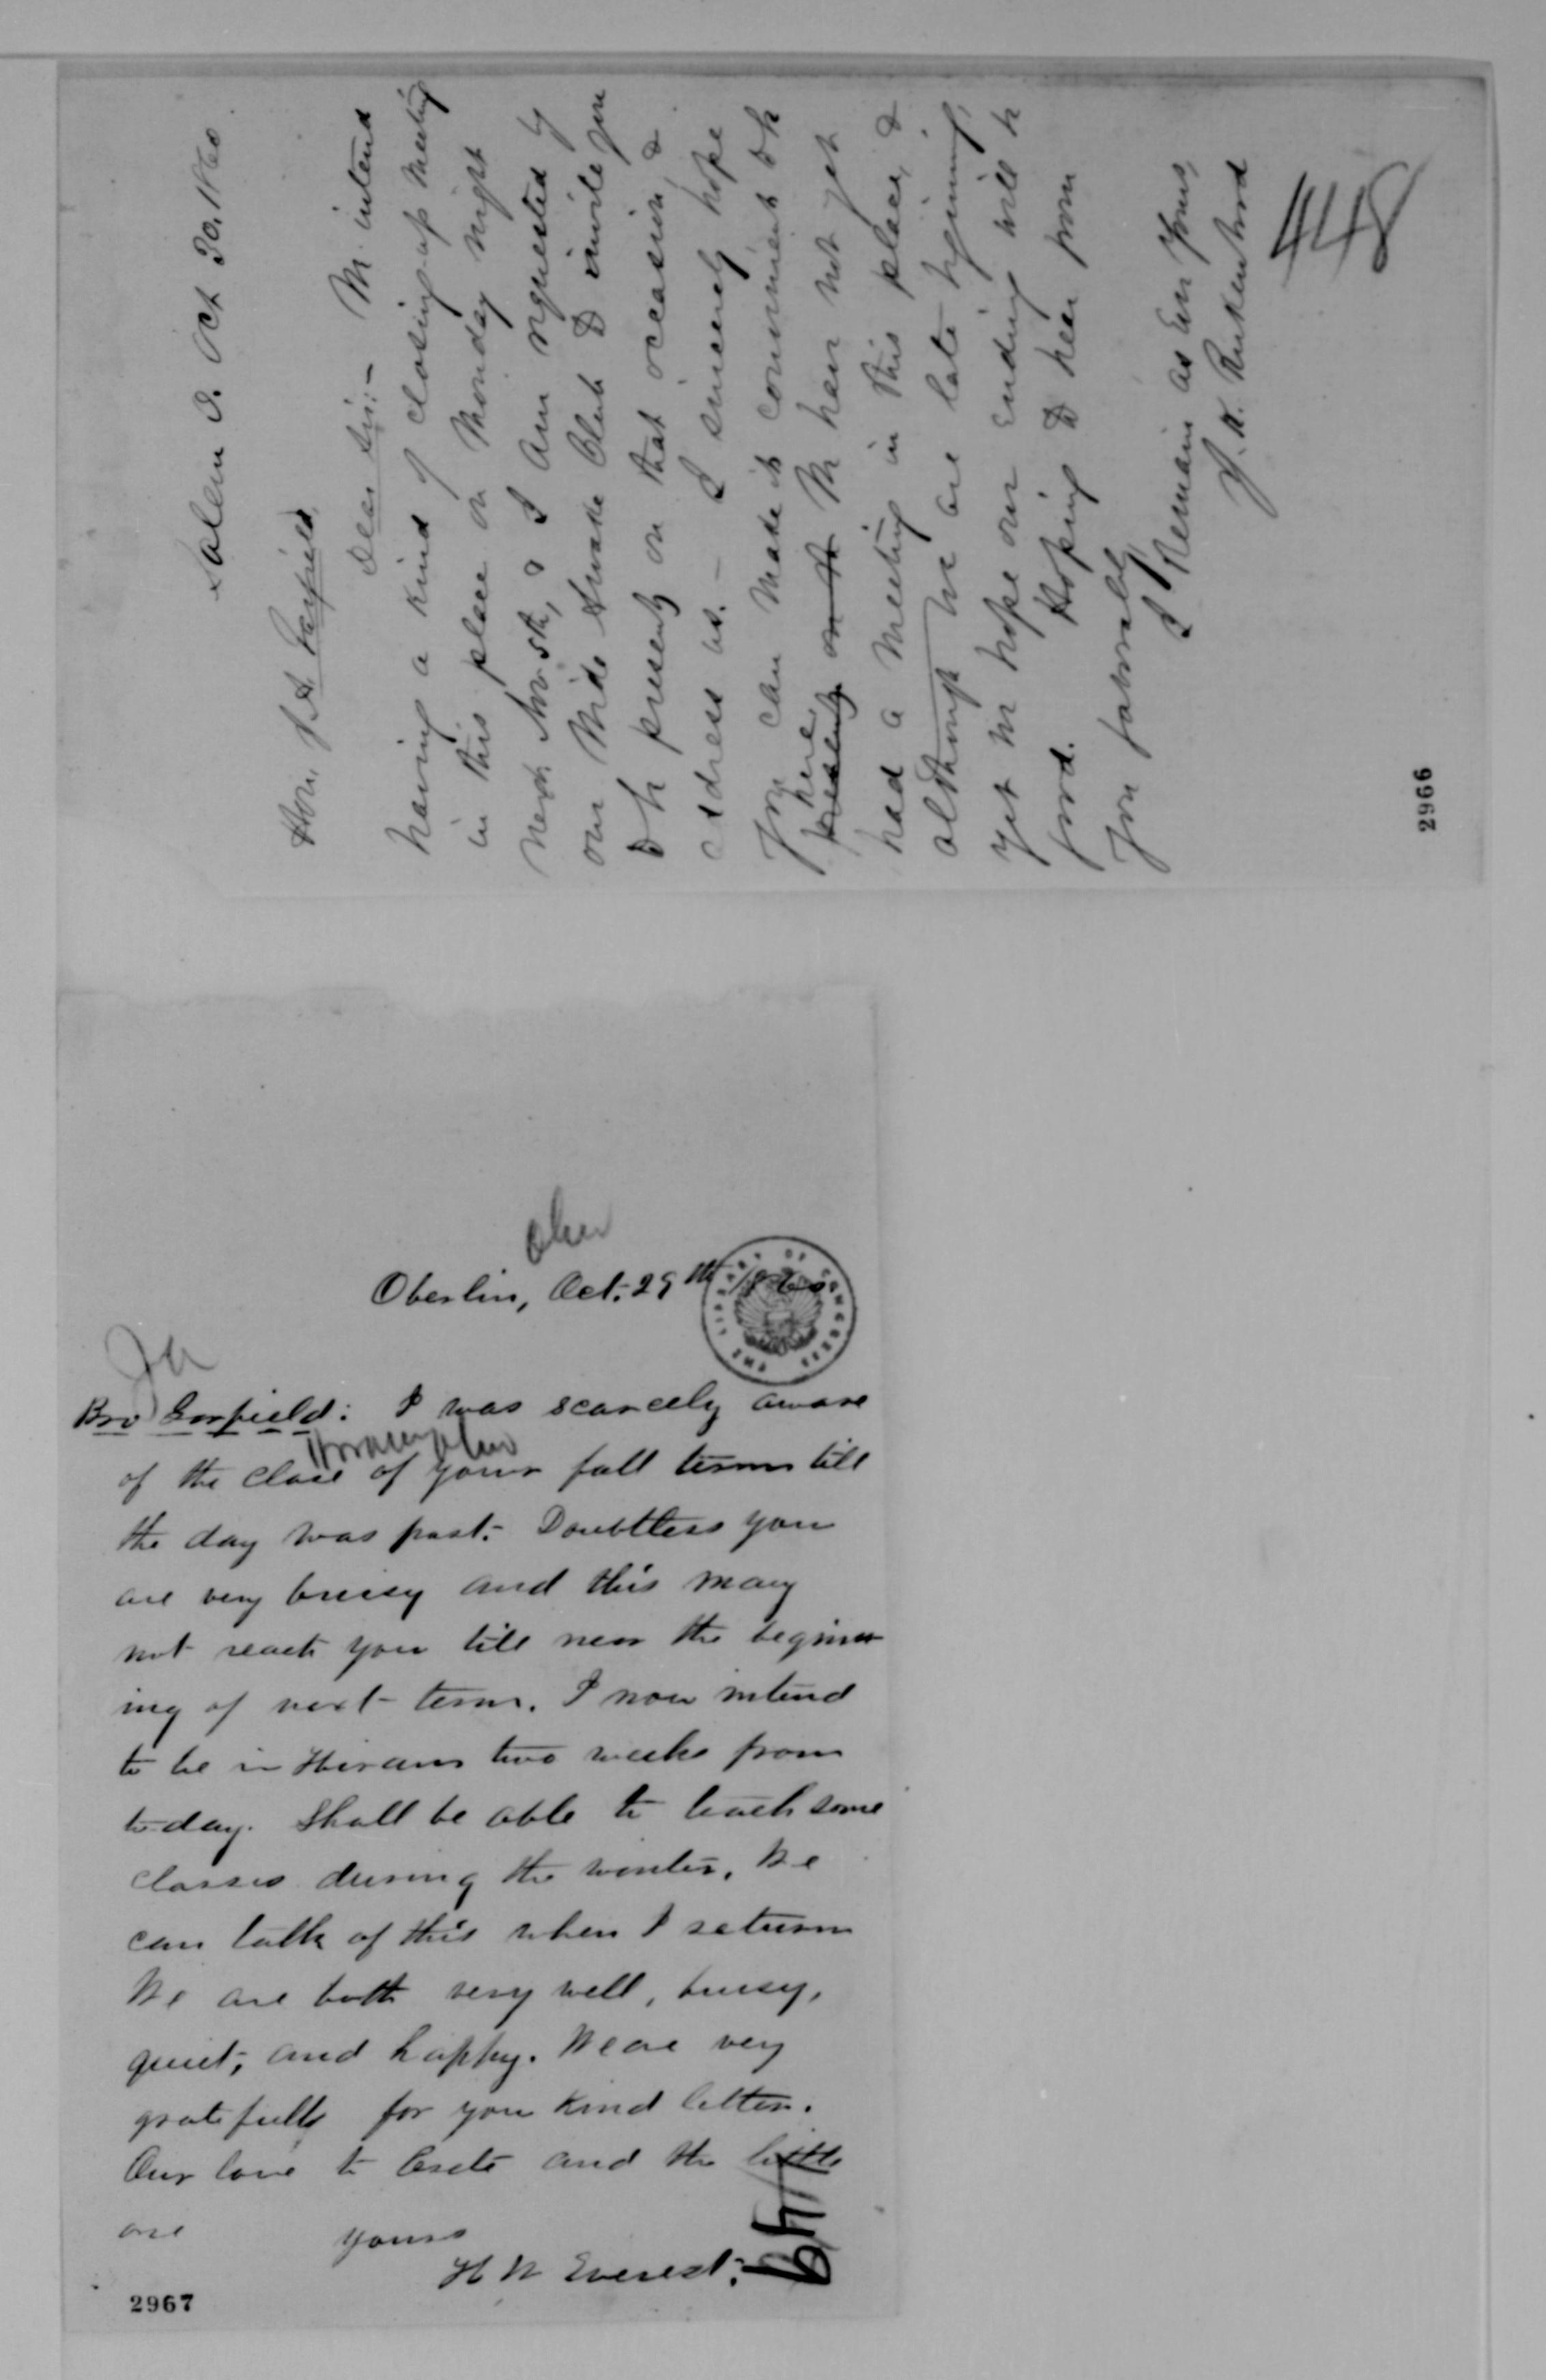 Salem O. Oct 30. 1860
Hon. J. A. Garfield,
Dear Sir:— We intend
having a kind of closing-up meeting
in this place on Monday night
next Nov 5th, & I am requested by
our Wide Awake Club to invite you
to be present on that occasion, &
address us.— I sincerely hope
you can make it convenient to be
here
present on th We have not yet
had a meeting in this place, &
although we are late beginning,
yet we hope our ending will be
good. Hoping to hear from
you favorably,
I Remain as Ever Yours,
J. K. Rukenbrod
448
2966
Oberlin, Oct. 29th 1860
THE LIBRARY OF CONGRESS
Bro Garfield: I was scarcely aware
of the close of your fall term till
the day was past. Doubtless you
are very buisy and this may
not reach you till near the beginn
ing of next term. I now intend
to be in Hiram two weeks from
to-day. Shall be able to teach some
classes during the winter. We
can talk of this when I return
We are both very well, buisy,
quiet, and happy. We are very
gratefull for you kind letter.
Our love to Crete and the little
one yours
H W Everest.
449
2967